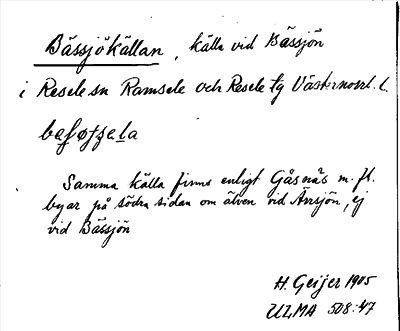 Bässjökällan, källa vid Bässjön
i Resele sn Ramsele och Resele tg Västernorrl. l.
Samma källa finns enligt Gåsnäs m. fl.
byar på södra sidan om älven vid Ärrsjön, ej
vid Bässjön
H. Geijer 1905
ULMA 508:47